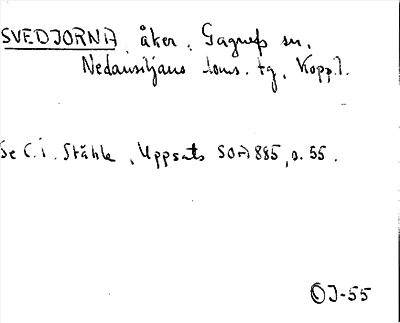 SVEDJORNA, åker, Gagnefs sn,
Nedansiljans doms. tg, Kopp.l.
Se C.I. Ståhle, Uppsats SOA 885, s. 55.
OJ-55